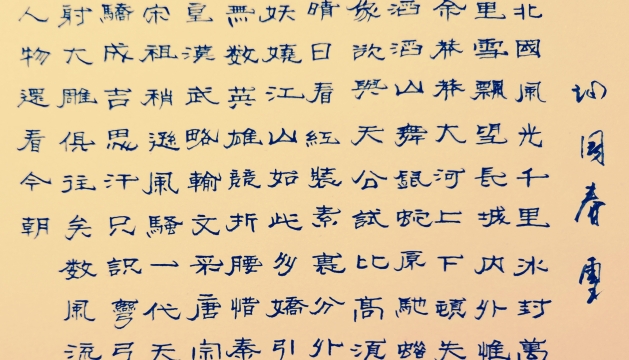 沁园春雪
北國風光千里冰封萬
里雪飄望長城内外惟
余莽莽大河上下頓失
滔滔山舞銀蛇原馳蠟
象欲與天公試比高須
晴日看紅裝素裹分外
妖嬈江山如此多嬌引
無数英雄競折腰惜秦
皇漢武略輸文采唐宗
宋祖稍遜風騷一代天
驕成吉思汗只識彎弓
射大雕俱往矣数風流
人物還看今朝